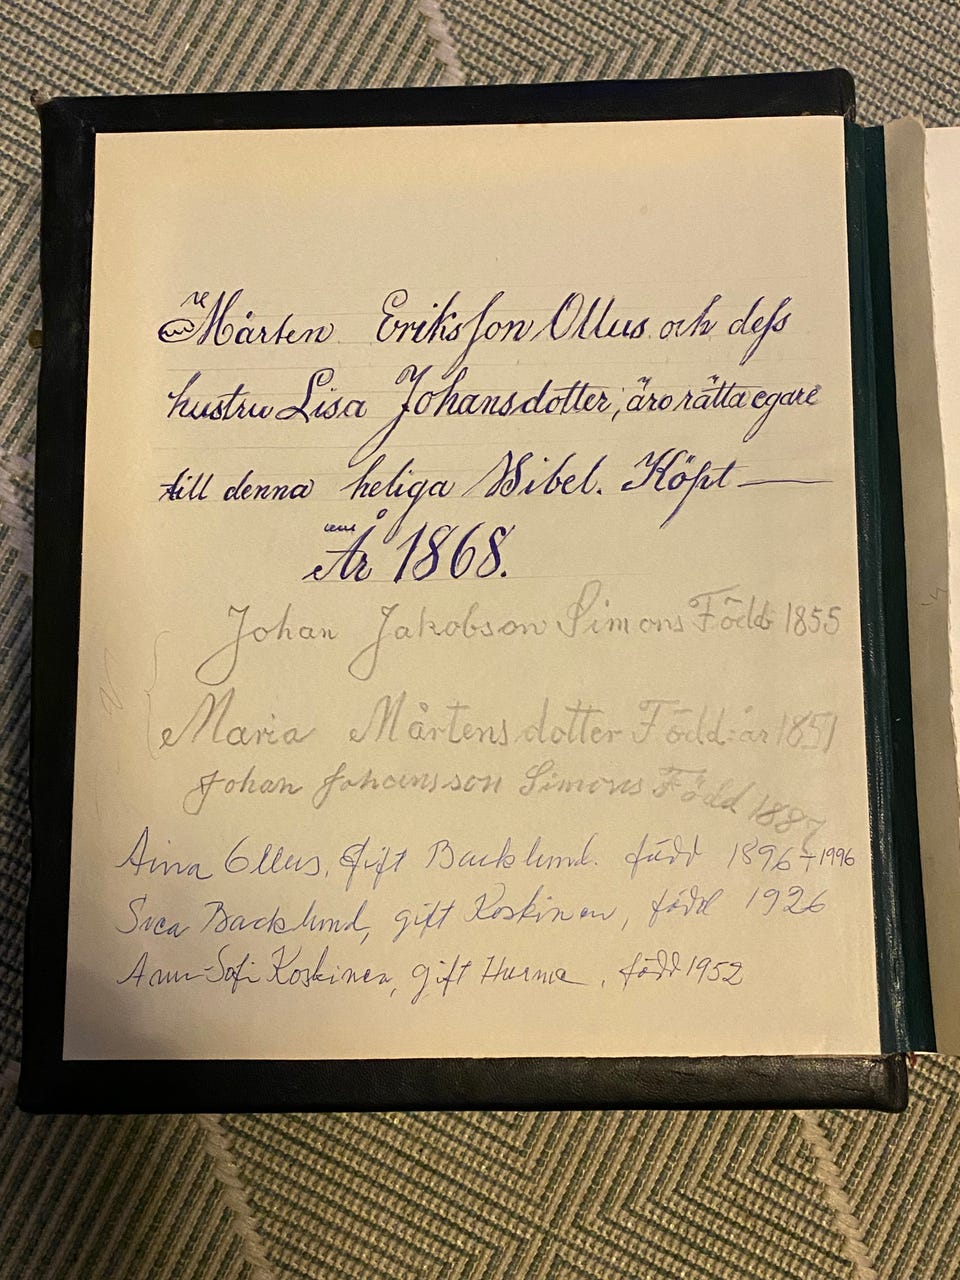 Mårten Eriksson Ollus och dess
hustru Lisa Johansdotter, äro rätta egare
till denna heliga Bibel. Köpt —
År 1868.
Johan Jakobson Simons Född 1855
Maria Mårtensdotter Född: år 1851
Johan Johansson Simons Född 1887
Aina Ollus, gift Backlund. född 1896 + 1996
Svea Backlund, gift Koskinen, född 1926
Ann-Sofi Koskinen, gift Hurme, född 1952